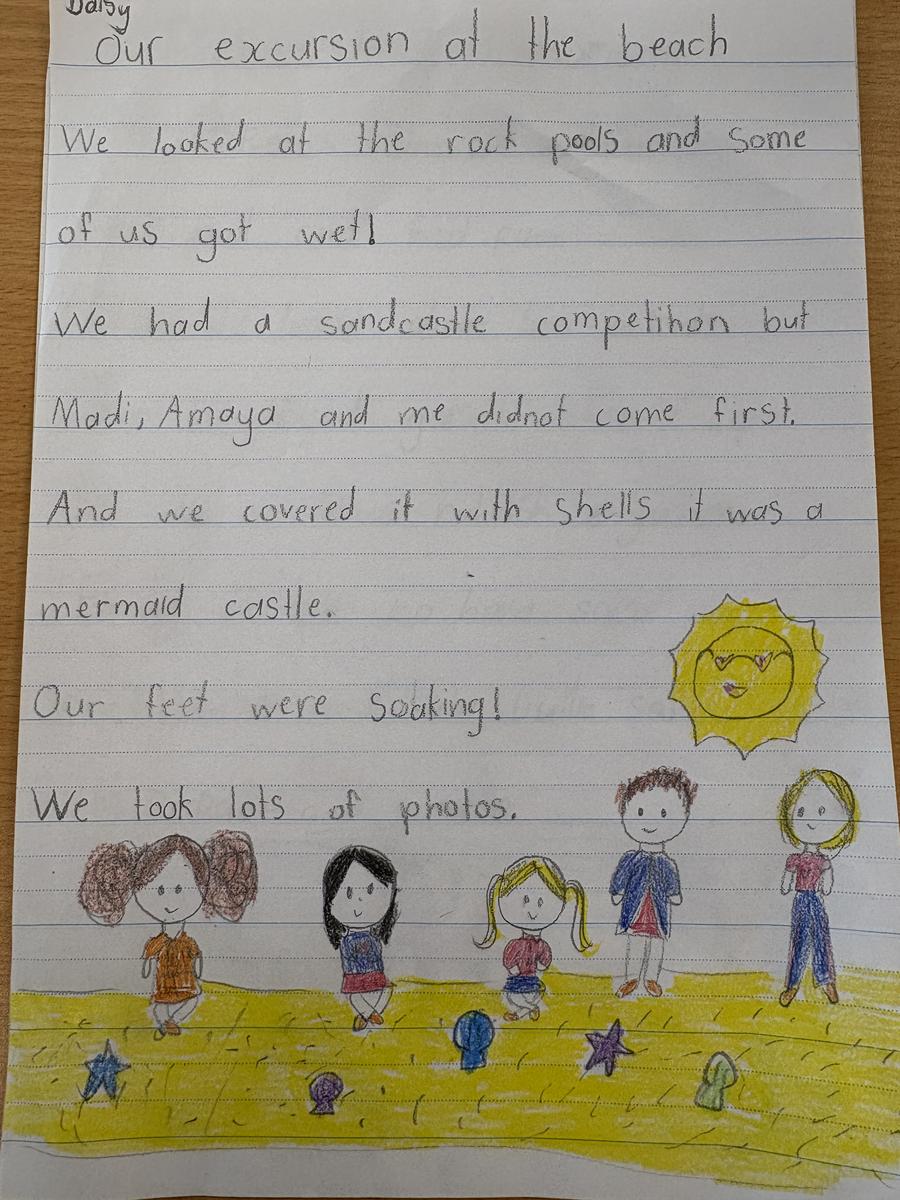 Daisy
Our excursion at the beach
We looked at the rock pools and some
of us got wet!
We had a sandcastle competition but
Madi, Amaya and me didnot come first.
And we covered it with shells it was a
mermaid castle.
Our feet were soaking!
We took lots of photos.